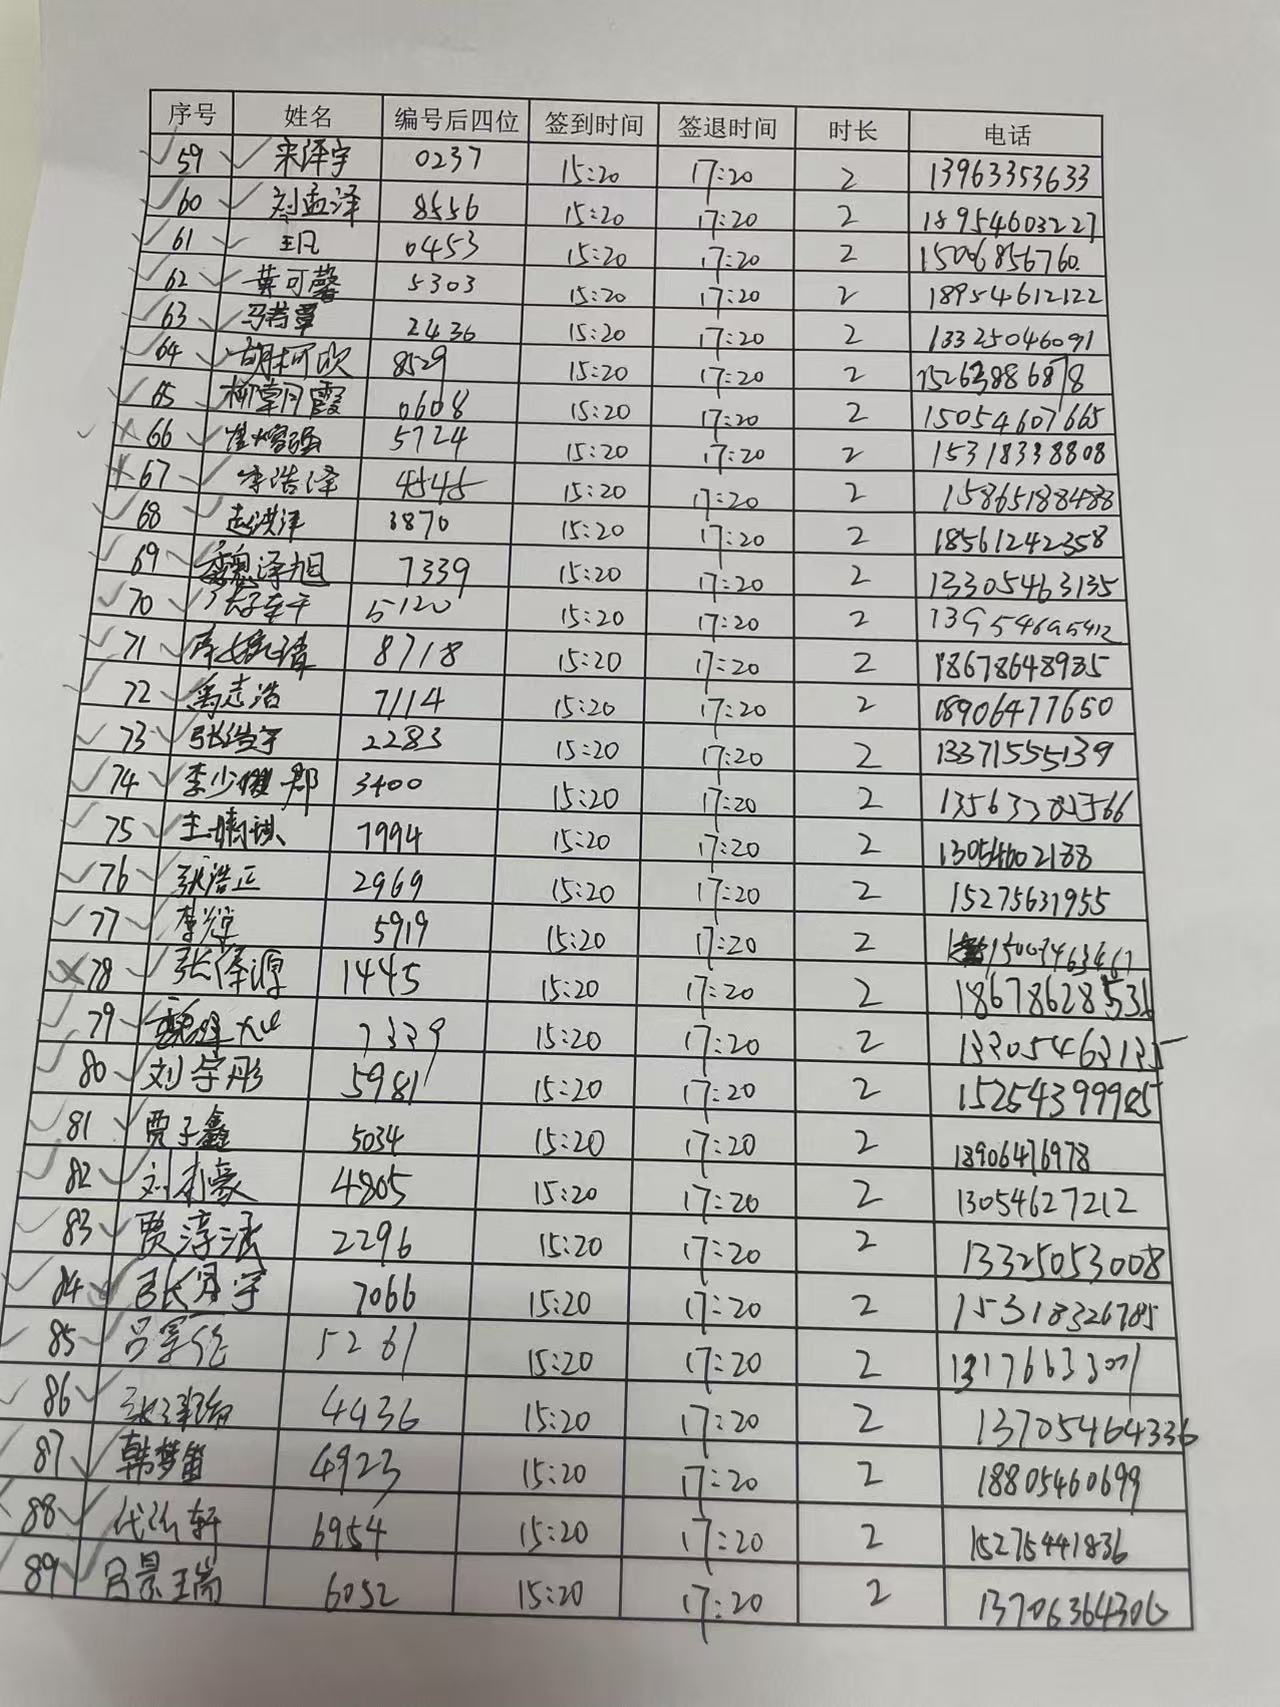 序号 姓名 编号后四位 签到时间 签退时间 时长 电话
59 宋泽宇 0237 15:20 17:20 2 13963353633
60 刘孟泽 8556 15:20 17:20 2 18954603227
61 王凡 0453 15:20 17:20 2 15006856760
62 黄可馨 5303 15:20 17:20 2 18954612122
63 2436 15:20 17:20 2 13325046091
64 胡柯欣 8529 15:20 17:20 2 15263886878
65 柳棠月霞 0608 15:20 17:20 2 15054607665
66 5724 15:20 17:20 2 15318338808
67 李浩泽 4545 15:20 17:20 2 15865188488
68 赵洪洋 3870 15:20 17:20 2 18561242358
69 魏泽旭 7339 15:20 17:20 2 13305463135
70 5120 15:20 17:20 2 13954695412
71 8718 15:20 17:20 2 18678648935
72 禹志浩 7114 15:20 17:20 2 18906477650
73 张浩宇 2283 15:20 17:20 2 13371555139
74 3400 15:20 17:20 2
75 7994 15:20 17:20 2 13054602188
76 张浩正 2969 15:20 17:20 2 15275631955
77 5919 15:20 17:20 2
78 张泽源 1445 15:20 17:20 2 18678628536
79 7339 15:20 17:20 2 13305463135
80 刘宇彤 5981 15:20 17:20 2
81 贾子鑫 5034 15:20 17:20 2 18906476978
82 刘梓豪 4805 15:20 17:20 2 13054627212
83 贾淳涵 2296 15:20 17:20 2 13325053008
84 7066 15:20 17:20 2 15318326785
85 5261 15:20 17:20 2
86 4436 15:20 17:20 2 13705464336
87 韩梦笛 4923 15:20 17:20 2 18805460699
88 6954 15:20 17:20 2 15275441836
89 吕景瑞 6052 15:20 17:20 2 13706364306